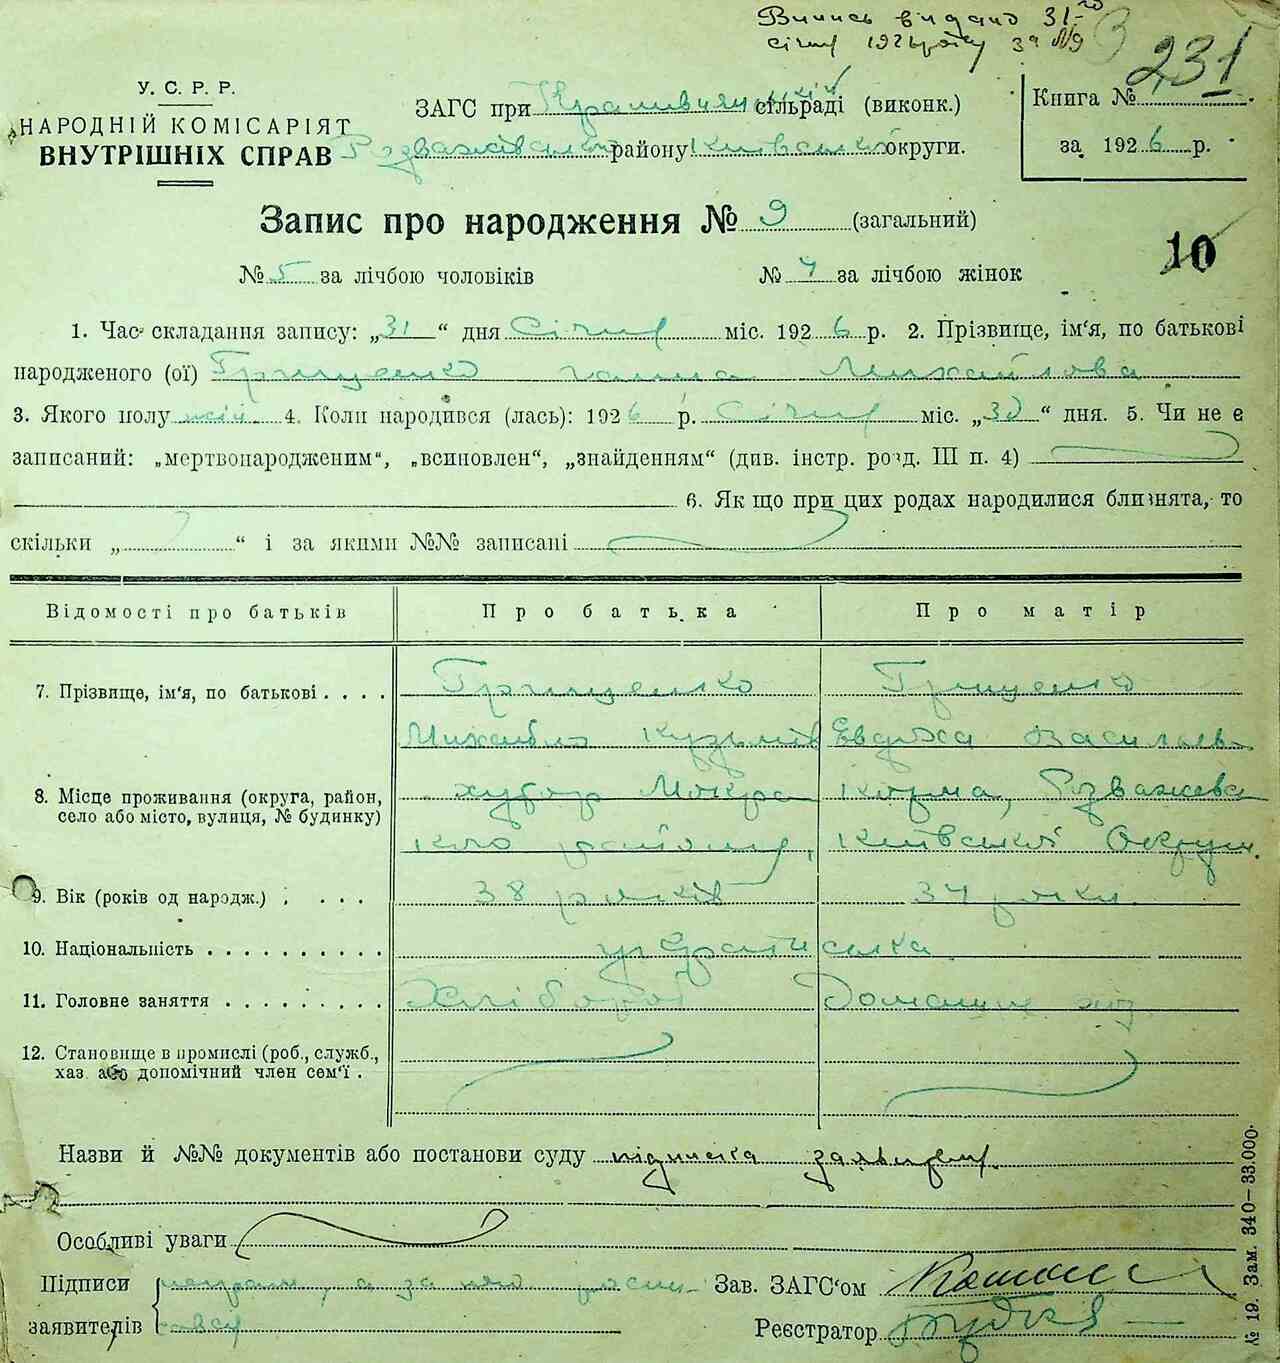 Випись видано 31-го
січня 1926 року за №9
231
У. С. Р. Р.
НАРОДНІЙ КОМІСАРІЯТ
ВНУТРІШНІХ СПРАВ
ЗАГС при сільраді (виконк.)
Розважівського району Київської округи.
Книга №
за 1926 р.
Запис про народження № 9 (загальний)
10
№ 5 за лічбою чоловіків № 4 за лічбою жінок
1. Час складання запису: „31“ дня Січня міс. 1926 р. 2. Прізвище, ім'я, по батькові
народженого (ої) Грищенко Ганна Михайлова
3. Якого полу жін 4. Коли народився (лась): 1926 р. Січня міс. „30“ дня. 5. Чи не є
записаний: „мертвонародженим“, „всиновлен“, „знайденям“ (див. інстр. розд. III п. 4)
6. Як що при цих родах народилися близнята, то
скільки „ “ і за якими №№ записані
Відомості про батьків Про батька Про матір
7. Прізвище, ім'я, по батькові . . . . Грищенко Грищенко
Михайло Кузьмів Евдоха Васильев
8. Місце проживання (округа, район,
село або місто, вулиця, № будинку)
хутор Мокра Корма, Розважевс
кого району, Київської Округи.
9. Вік (років од народж.) . . . . 38 років 34 роки
10. Національність . . . . . . . . . . українська
11. Головне заняття . . . . . . . . . Хлібороб Домашне
12. Становище в промислі (роб., служб.,
хаз. або допомічний член сем'ї .
Назви й №№ документів або постанови суду підписка заявителя
Особливі уваги
Підписи неграм, а за него роспи-
заявителів
Зав. ЗАГС'ом
Реєстратор
№ 19. Зам. 340—33.000.